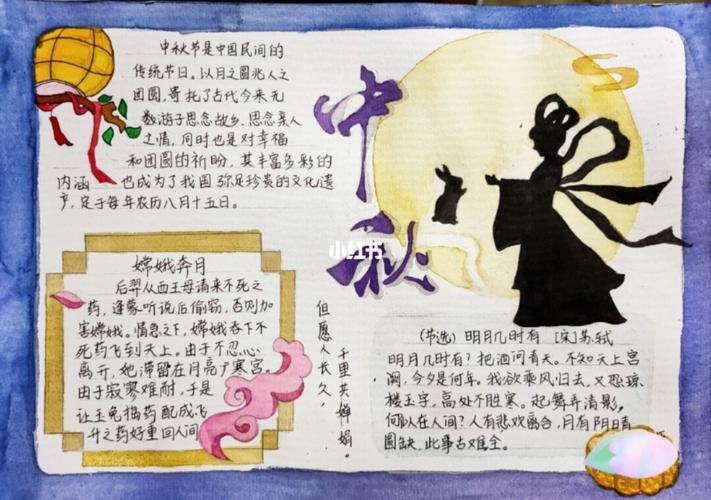 中秋节是中国民间的
传统节日。以月之圆兆人之
团圆,寄托了古代今来无
数游子思念故乡、思念亲人
之情,同时也是对幸福
和团圆的祈盼,其丰富多彩的
内涵 也成为了我国弥足珍贵的文化遗
产,定于每年农历八月十五日。
中秋
小红书
嫦娥奔月
后羿从西王母请来不死之
药,逢蒙听说后偷窃,否则加
害嫦娥。情急之下,嫦娥吞下不
死药飞到天上。由于不忍心
离开,她滞留在月亮广寒宫。
由于寂寥难耐,于是
让玉兔捣药配成飞
升之药好重回人间
但愿人长久
千里共婵娟。
(节选) 明月几时有 [宋]苏轼
明月几时有?把酒问青天。不知天上宫
阙,今夕是何年。我欲乘风归去,又恐琼
楼玉宇,高处不胜寒。起舞弄清影,
何似在人间?人有悲欢离合,月有阴晴
圆缺,此事古难全。